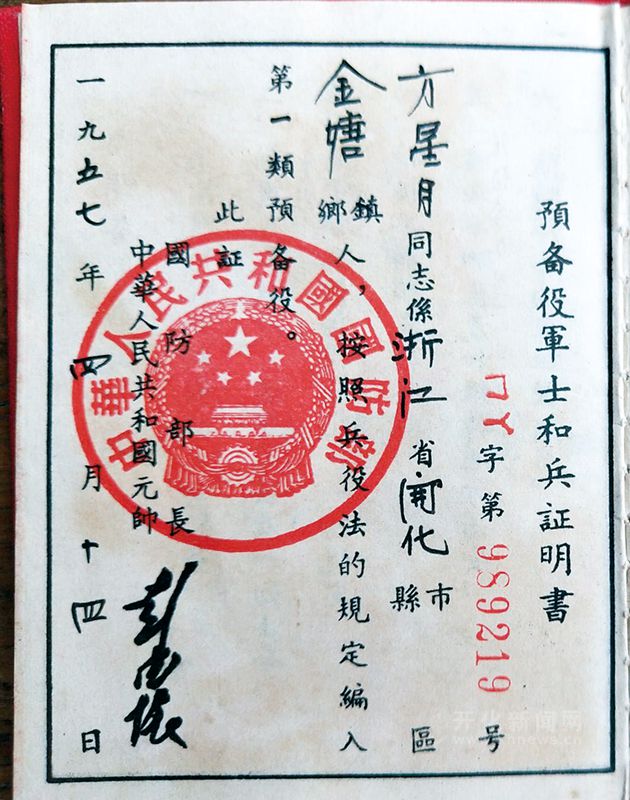 預备役軍士和兵証明書
ㄇㄚ字第989219号
方星月同志係浙江省開化縣市區
金塘鄉鎮人，按照兵役法的規定編入
第一類預备役。
此証
國防部長
中華人民共和國元帥
彭德懷
一九五七年四月十四日
中華人民共和國國防部
开化新闻网